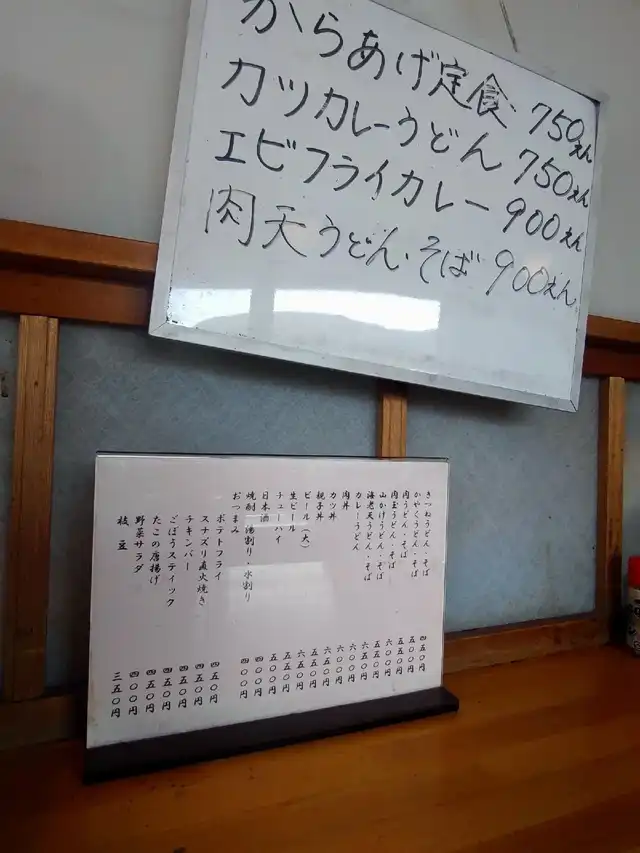 からあげ定食 750えん
カツカレーうどん 750えん
エビフライカレー 900えん
肉天うどん・そば 900えん
きつねうどん・そば 四五〇円
かやくうどん・そば 五〇〇円
肉うどん・そば 五五〇円
肉玉うどん・そば 六〇〇円
山かけうどん・そば 五五〇円
海老天うどん・そば 六五〇円
カレーうどん 六〇〇円
肉丼 六〇〇円
カツ丼 六〇〇円
親子丼 五五〇円
ビール(大) 六五〇円
生ビール 五五〇円
チューハイ 五〇〇円
日本酒 四〇〇円
焼酎 湯割り・水割り 四〇〇円
おつまみ
ポテトフライ 四五〇円
スナズリ直火焼き 四五〇円
チキンバー 四五〇円
ごぼうスティック 四五〇円
たこの唐揚げ 四五〇円
野菜サラダ 四〇〇円
枝豆 三五〇円